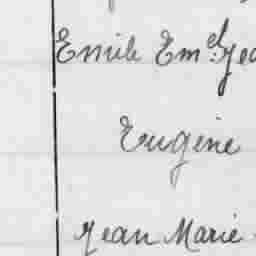 Emile Em.el Jea
Eugène
Jean Marie